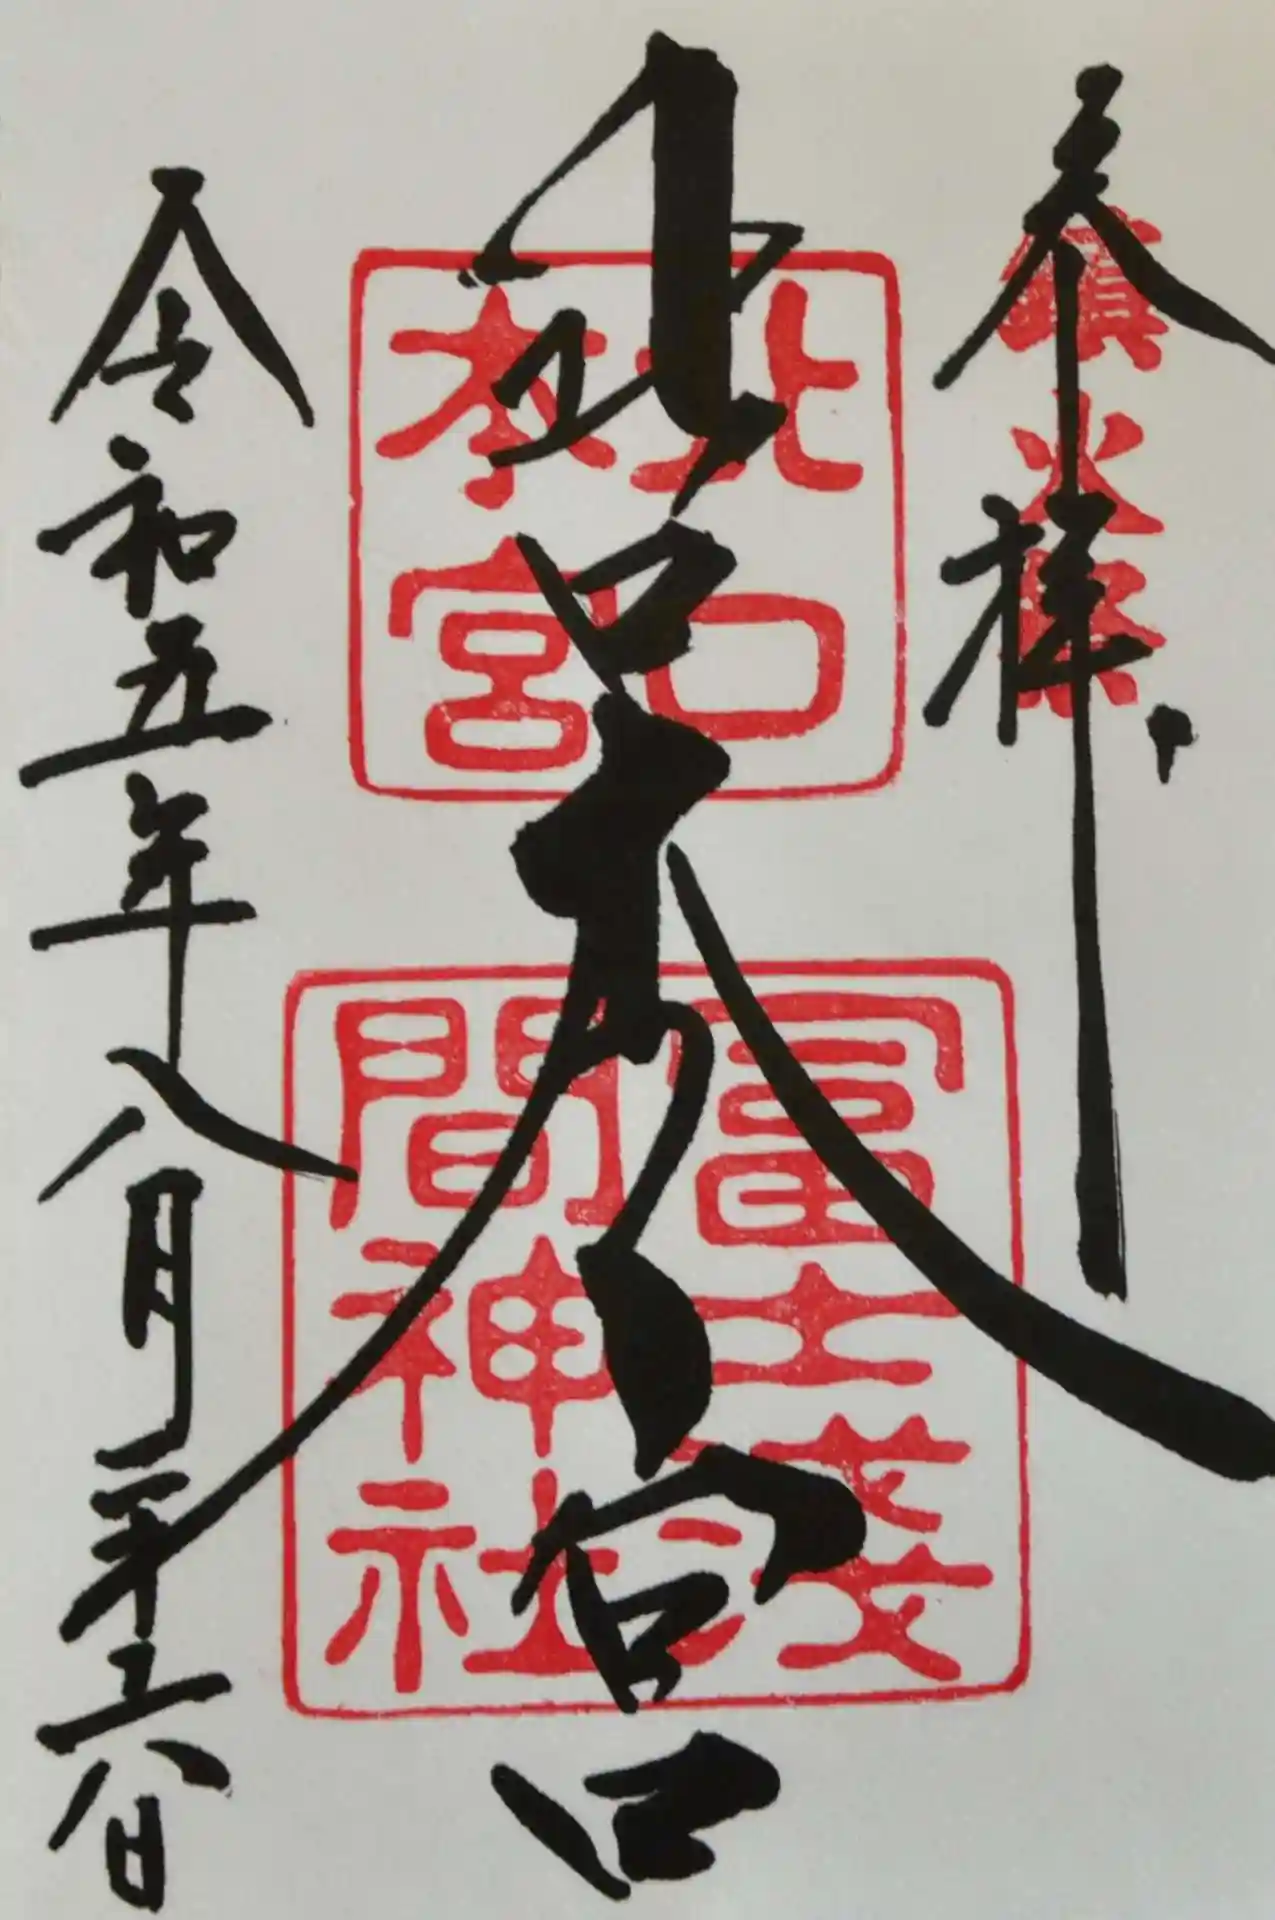 奉拝
鎮火祭
北口本宮
北口
本宮
冨士淺
間神社
令和五年八月二十六日